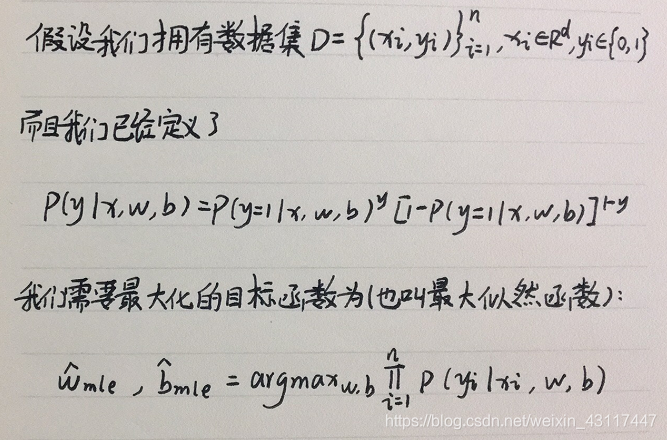 假设我们拥有数据集 D = {(xi, yi)}ⁿᵢ₌₁, xi ∈ Rᵈ, yi ∈ {0,1}
而且我们已经定义了
P(y|x, w, b) = P(y=1|x, w, b)ʸ [1-P(y=1|x, w, b)]¹⁻ʸ
我们需要最大化的目标函数为(也叫最大似然函数):
ŵmle, b̂mle = argmaxw,b ∏ⁿᵢ₌₁ P(yi|xi, w, b)
https://blog.csdn.net/weixin_43117447